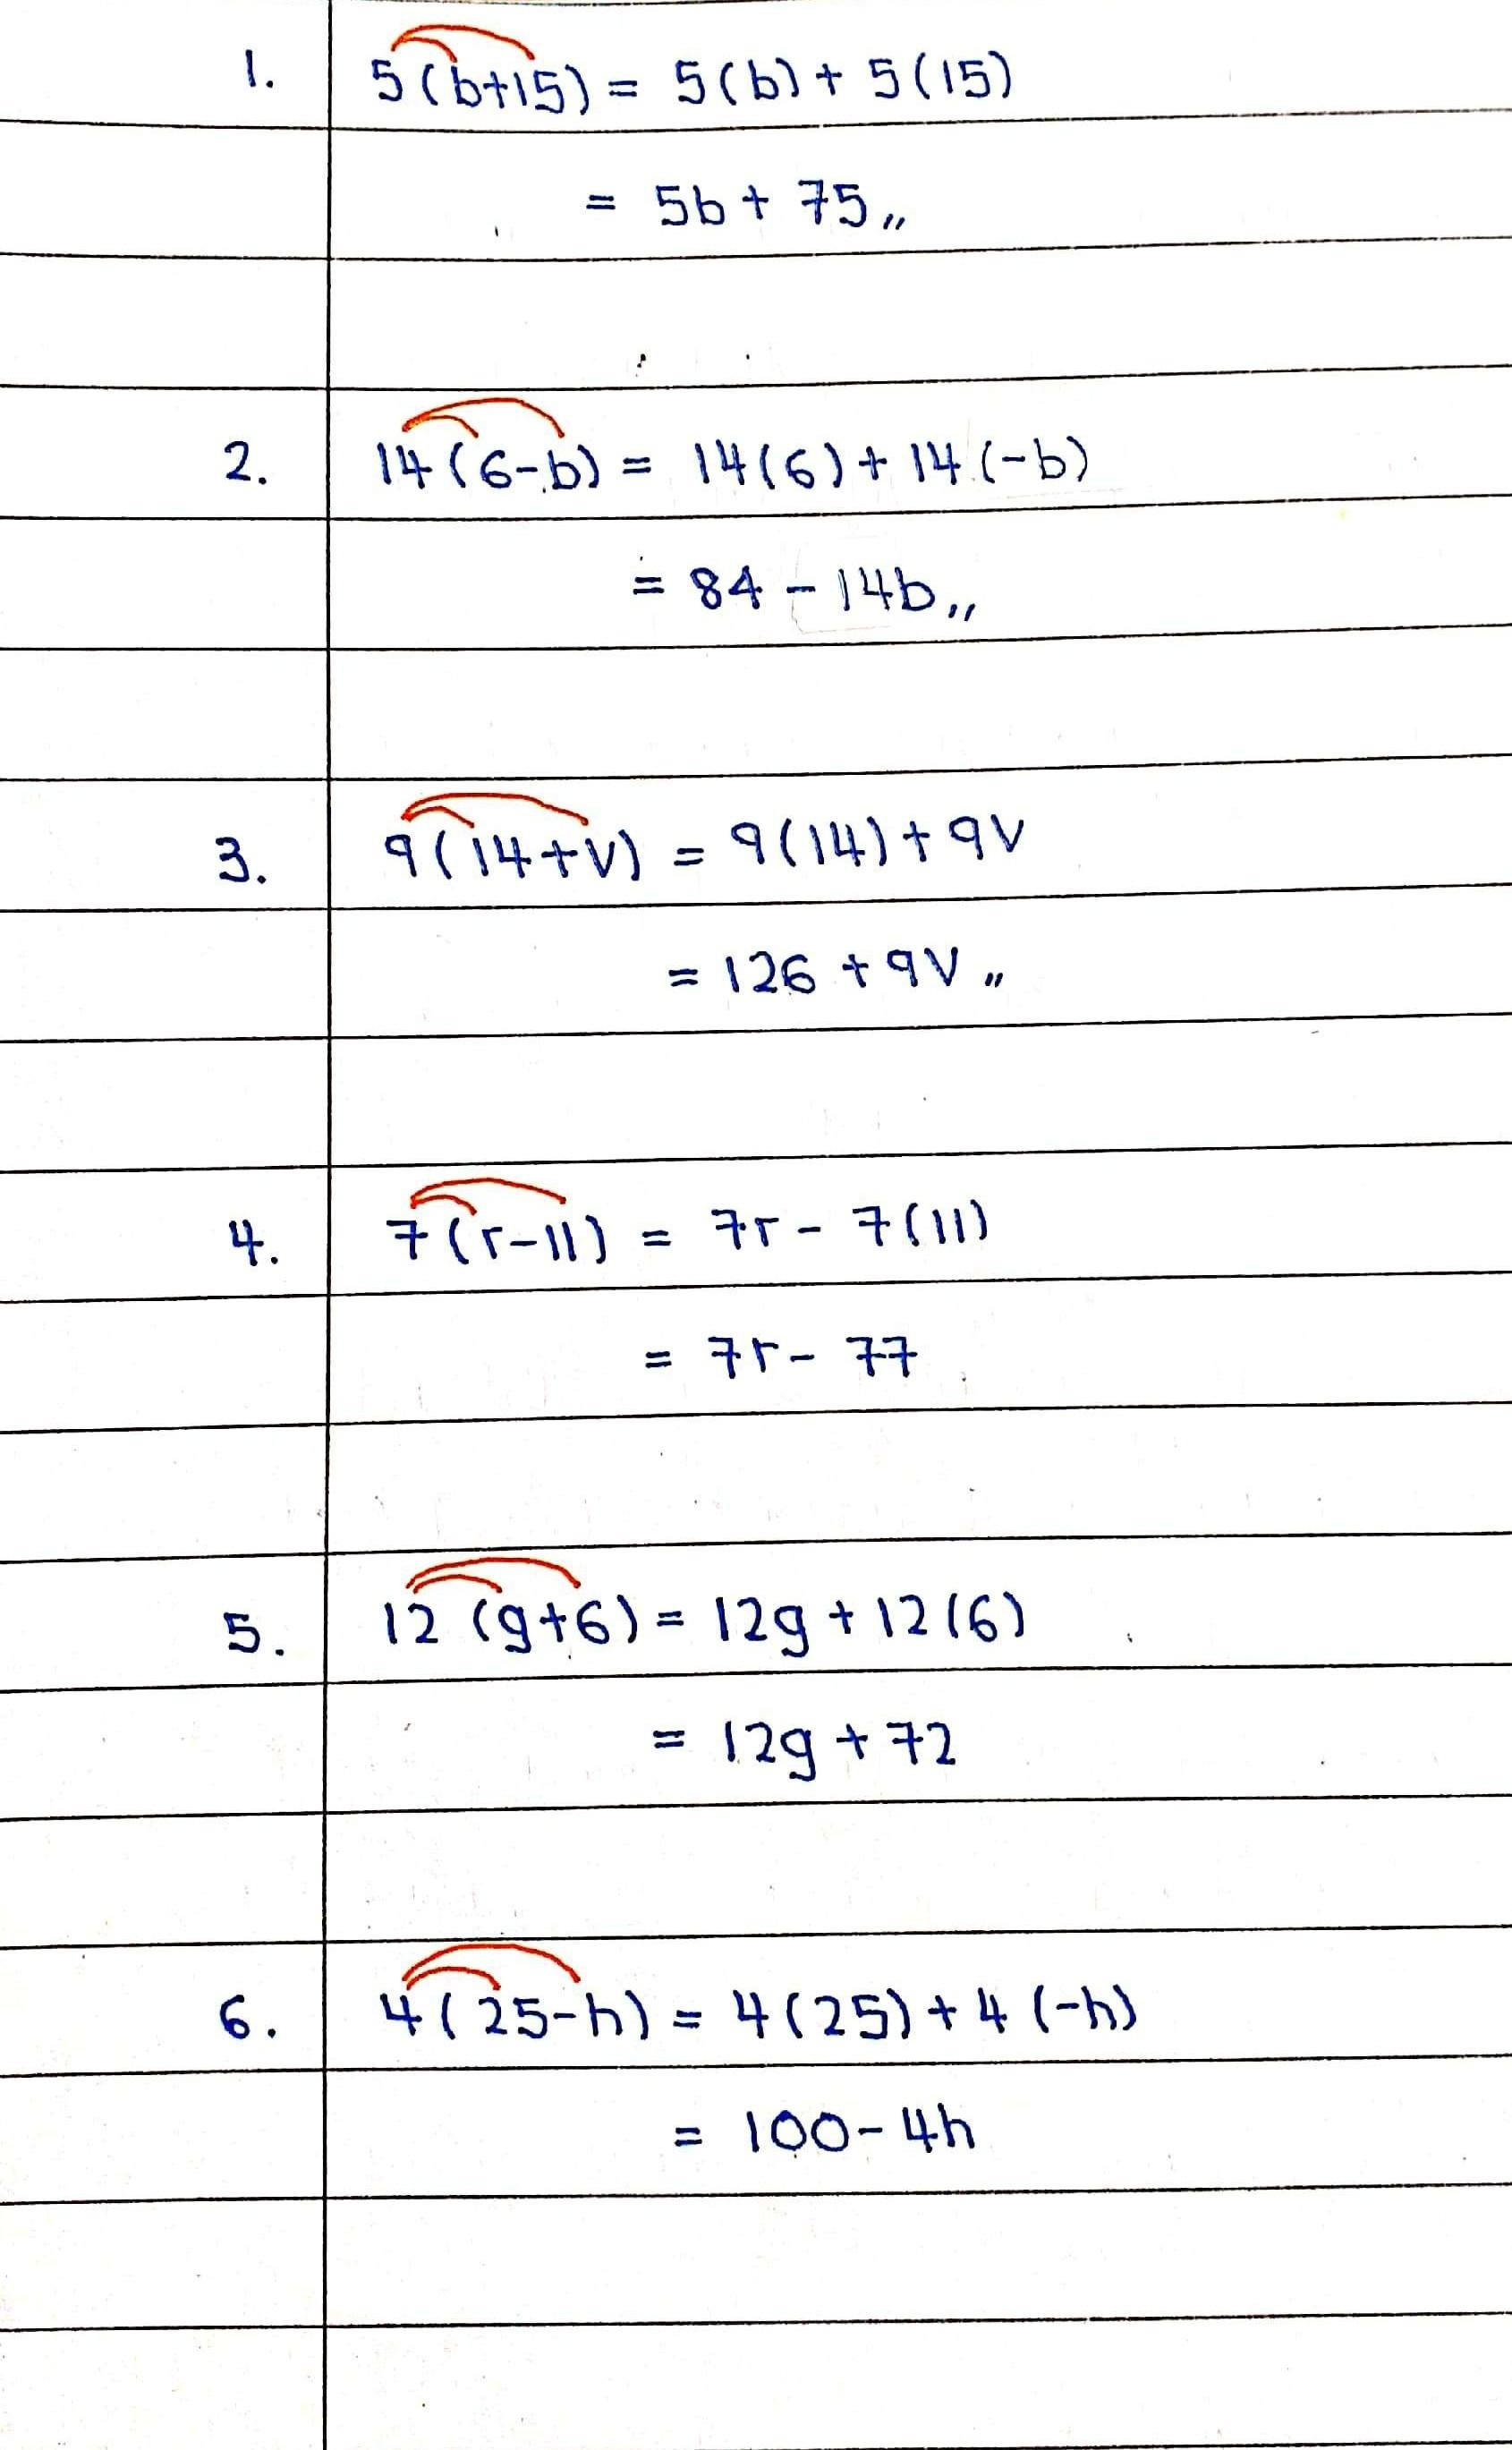 1. 5(b+15) = 5(b) + 5(15)
= 5b + 75,,
2. 14(6-b) = 14(6) + 14(-b)
= 84 - 14b,,
3. 9(14+v) = 9(14) + 9v
= 126 + 9v,,
4. 7(r-11) = 7r - 7(11)
= 7r - 77
5. 12(g+6) = 12g + 12(6)
= 12g + 72
6. 4(25-h) = 4(25) + 4(-h)
= 100 - 4h